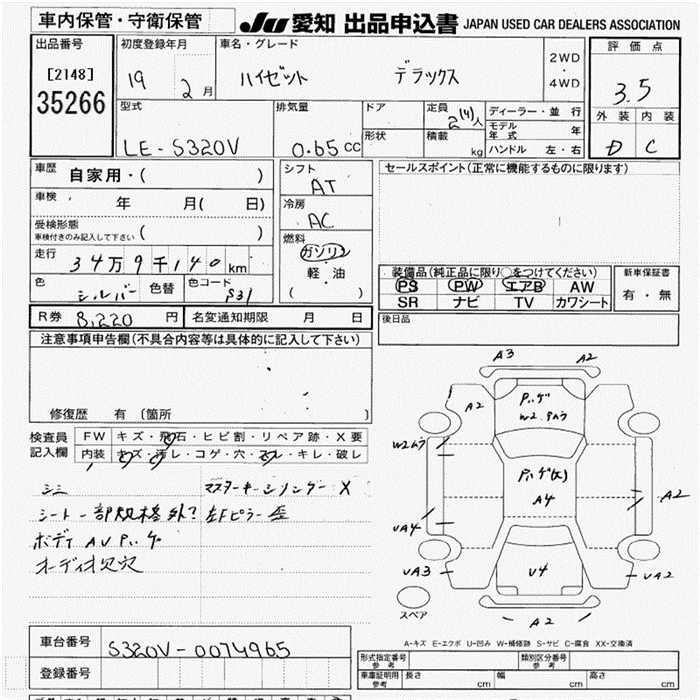 車内保管・守衛保管
JU 愛知 出品申込書 JAPAN USED CAR DEALERS ASSOCIATION
出品番号
[2148]
35266
初度登録年月
19 2月
車名・グレード
ハイゼット デラックス
2WD
・
4WD
評価点
3.5
外装 内装
D C
型式
LE-S320V
排気量
0.65 CC
ドア
形状
定員
2(4)人
積載
kg
ディーラー・並行
モデル年式 年
ハンドル 左・右
車歴
自家用・( )
車検
年 月( 日)
受検形態
車検付きのみ記入して下さい ( )
走行
34万9千140km
色
シルバー
色替
色コード
S31
シフト
AT
冷房
AC
燃料
ガソリン
軽・油
( )
セールスポイント(正常に機能するものに限ります)
装備品(純正品に限り○をつけてください)
PS PW エアB AW
SR ナビ TV カワシート
新車保証書
有・無
R券 8,220 円
名変通知期限 月 日
後日品
注意事項申告欄(不具合内容等は具体的に記入して下さい)
修復歴 有 〔箇所 〕
検査員
記入欄
FW キズ・飛石・ヒビ割・リペア跡・X要
内装 キズ・汚レ・コゲ・穴・スレ・キレ・破レ
シミ マスターキーシリンダーX
シート一部規格外? 左Fピラー歪
ボディAUパハゲ
オーディオ欠穴
A3 A2
A2
ハゲ
W2
W2
A4
A2
UA4
UA3
U4
UA2
A2
スペア
A-キズ E-エクボ U-凹み W-補修跡 S-サビ C-腐食 XX-交換済
車台番号
S320V-0074965
登録番号
形式指定番号
参考
類別区分番号
参考
車庫証明用
参考
長さ cm
幅 cm
高さ cm